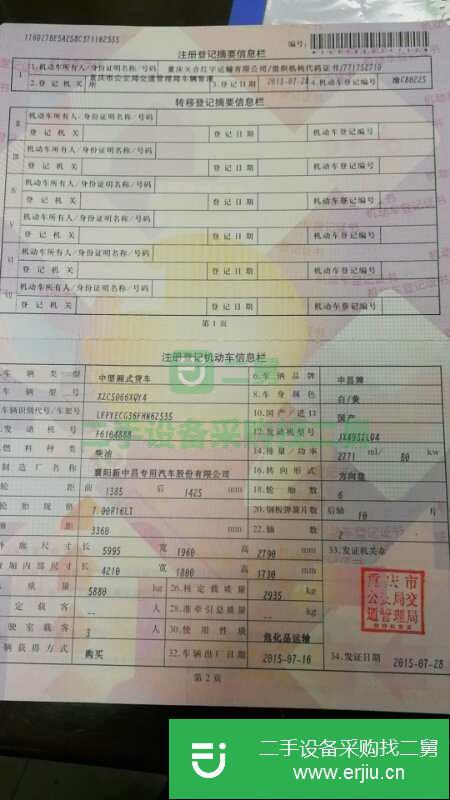 注册登记摘要信息栏
编号:
1.机动车所有人/身份证明名称/号码 重庆天合红宇运输有限公司/组织机构代码证书/
2.登记机关 重庆市公安局交通管理局车辆管理所 3.登记日期 2015-07-28 4.机动车登记编号
转移登记摘要信息栏
Ⅱ 机动车所有人/身份证明名称/号码
登记机关 登记日期 机动车登记编号
Ⅲ 机动车所有人/身份证明名称/号码
登记机关 登记日期 机动车登记编号
Ⅳ 机动车所有人/身份证明名称/号码
登记机关 登记日期 机动车登记编号
Ⅴ 机动车所有人/身份证明名称/号码
登记机关 登记日期 机动车登记编号
Ⅵ 机动车所有人/身份证明名称/号码
登记机关 登记日期 机动车登记编号
Ⅶ 机动车所有人/身份证明名称/号码
登记机关 登记日期 机动车登记编号
第1页
注册登记机动车信息栏
车辆类型 中型厢式货车 6.车辆品牌 中昌牌
车辆型号 XZC5066XQY4 8.车身颜色 白/黄
车辆识别代号/车架号 10.国产/进口 国产
发动机号 F6104888 12.发动机型号 JX493ZLQ4
燃料种类 柴油 14.排量/功率 2771 ml/ 80 kw
制造厂名称 襄阳新中昌专用汽车股份有限公司 16.转向形式 方向盘
轮距 前 1385 后 1425 mm 18.轮胎数 6
轮胎规格 7.00R16LT 20.钢板弹簧片数 后轴 10 片
轴距 3360 mm 22.轴数 2
外廓尺寸 长 5995 宽 1960 高 2790 mm 33.发证机关章
货厢内部尺寸 长 4210 宽 1800 高 1730 mm
总质量 5880 kg 26.核定载质量 2935 kg
核定载客 -- 人 28.准牵引总质量 -- kg
驾驶室载客 3 人 30.使用性质 危化品运输
车辆获得方式 购买 32.车辆出厂日期 2015-07-10 34.发证日期 2015-07-28
重庆市
公安局交
通管理局
第2页
二舅
二手设备采购找二舅
二手设备采购找二舅
www.erjiu.cn